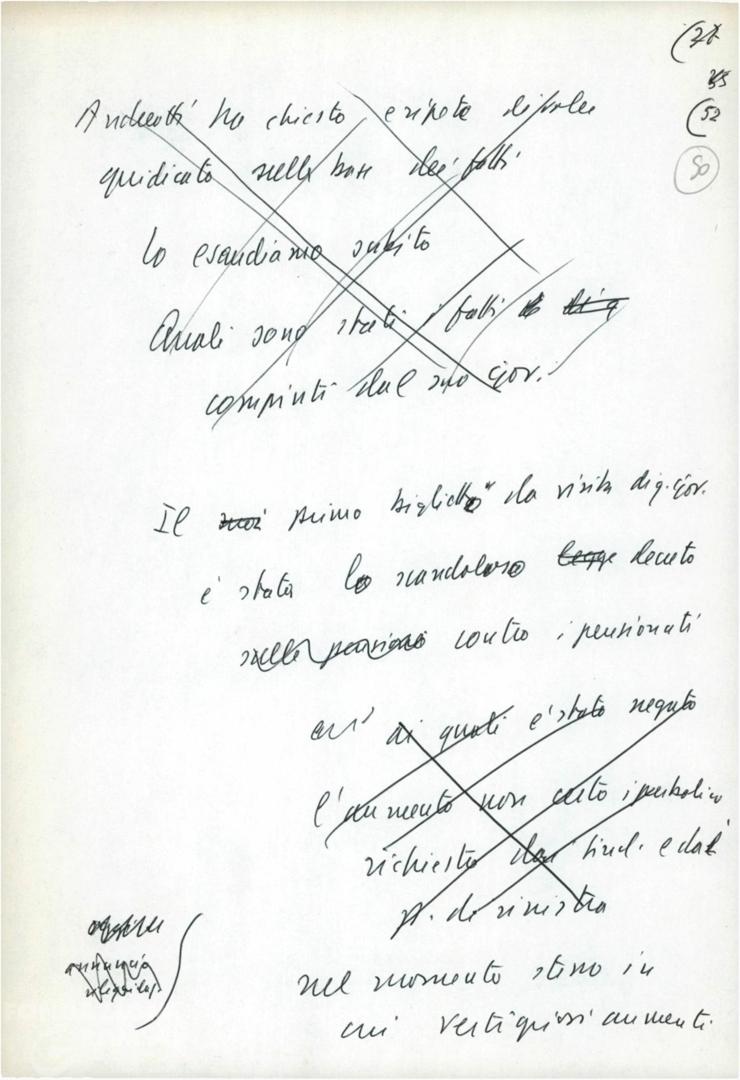 (78
35
(52
50
Andreotti ha chiesto e ripete di voler
giudicato sulla base dei fatti
Lo esaudiamo subito
Quali sono stati i fatti
compiuti dal suo gov.
Il primo biglietto" da visita di q. gov.
è stata lo scandaloso legge decreto
sulle pensioni contro i pensionati
cui ai quali è stato negato
l'aumento non certo iperbolico
richiesto dai sind. e dai
p. di sinistra
nel momento stesso in
cui vertiginosi aumenti.
annuncia